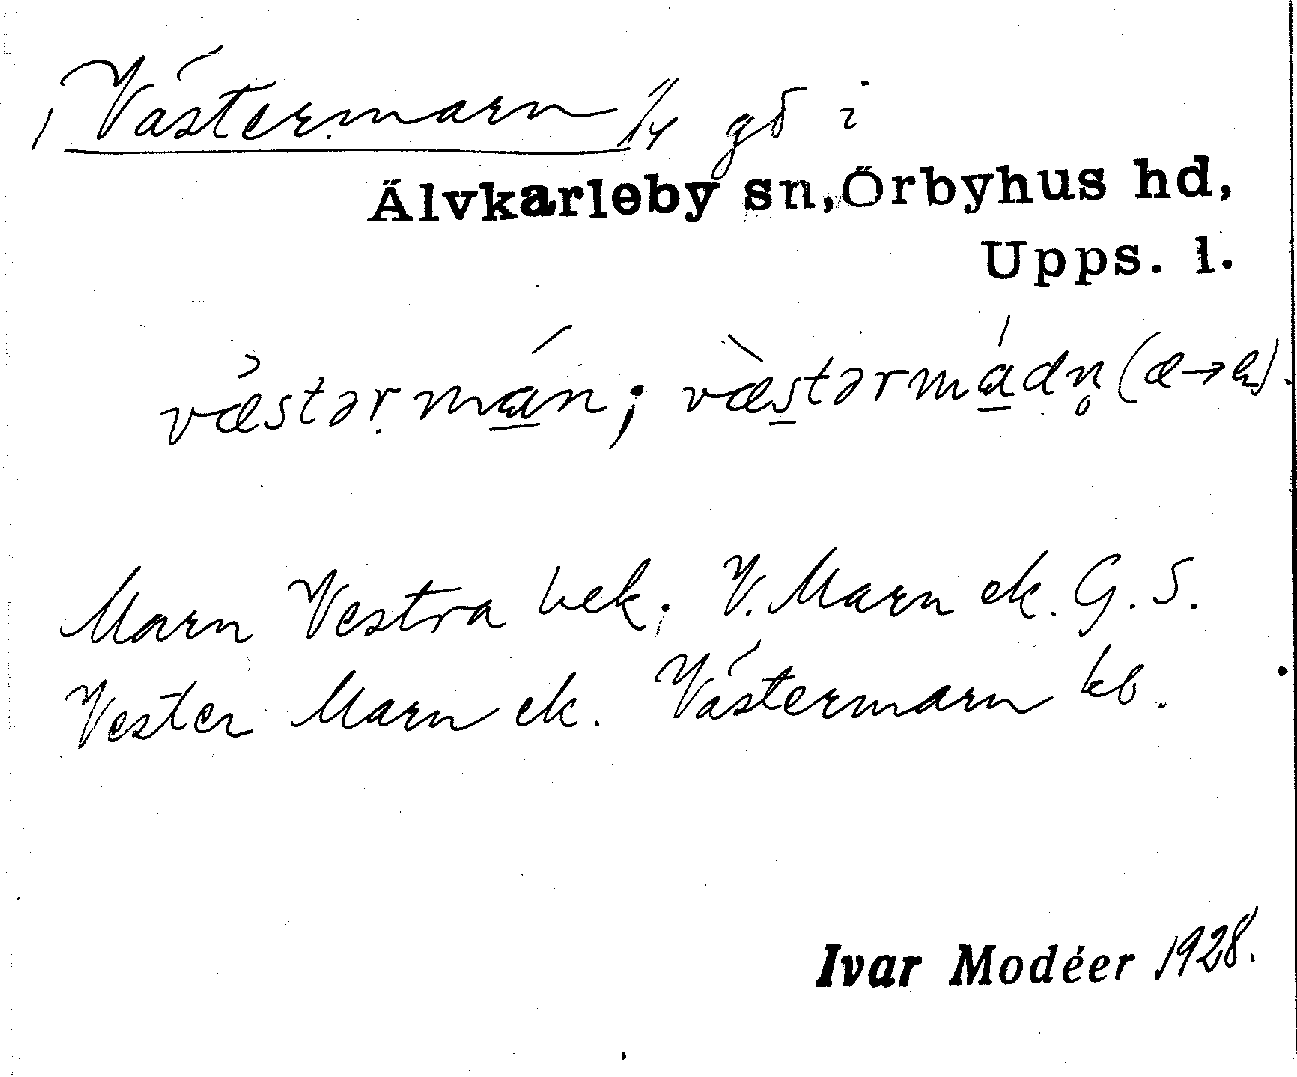 Västermarn 1/4 gd i
Älvkarleby sn, Örbyhus hd,
Upps. l.
væstərmán; væ̀stərmádn̥ (æ→
Marn Vestra bek. V. Marn ek. G. S.
Vester Marn ek. Västermarn kb.
Ivar Modéer 1928.